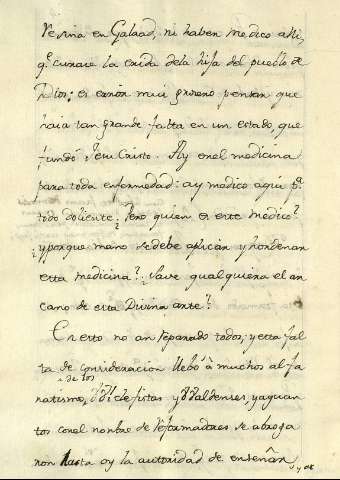 resina en Galaad, ni haben medico alli,
qe. curace la erida dela hija del pueblo de
Dios; es error mui grosero pensar que
haia tan grande falta en un estado, que
fundó Jesu Cristo. Ay en el medicina
para toda enfermedad: ay madico aqui pa.
todo doliente; Pero quien es este medico?
¿yporque mano sedebe aplicar y hordenar
esta medicina? ¿Save qualquiera el ar-
cano de esta Divina arte?
En esto no an reparado todos; y esta fal
ta de concideracion llebó à muchos al fa
de los
natismo, Wiclefistas y Valdenses, yaquan
tos conel nombre de reformadores se abroga
ron hasta oy la autoridad de enseñar